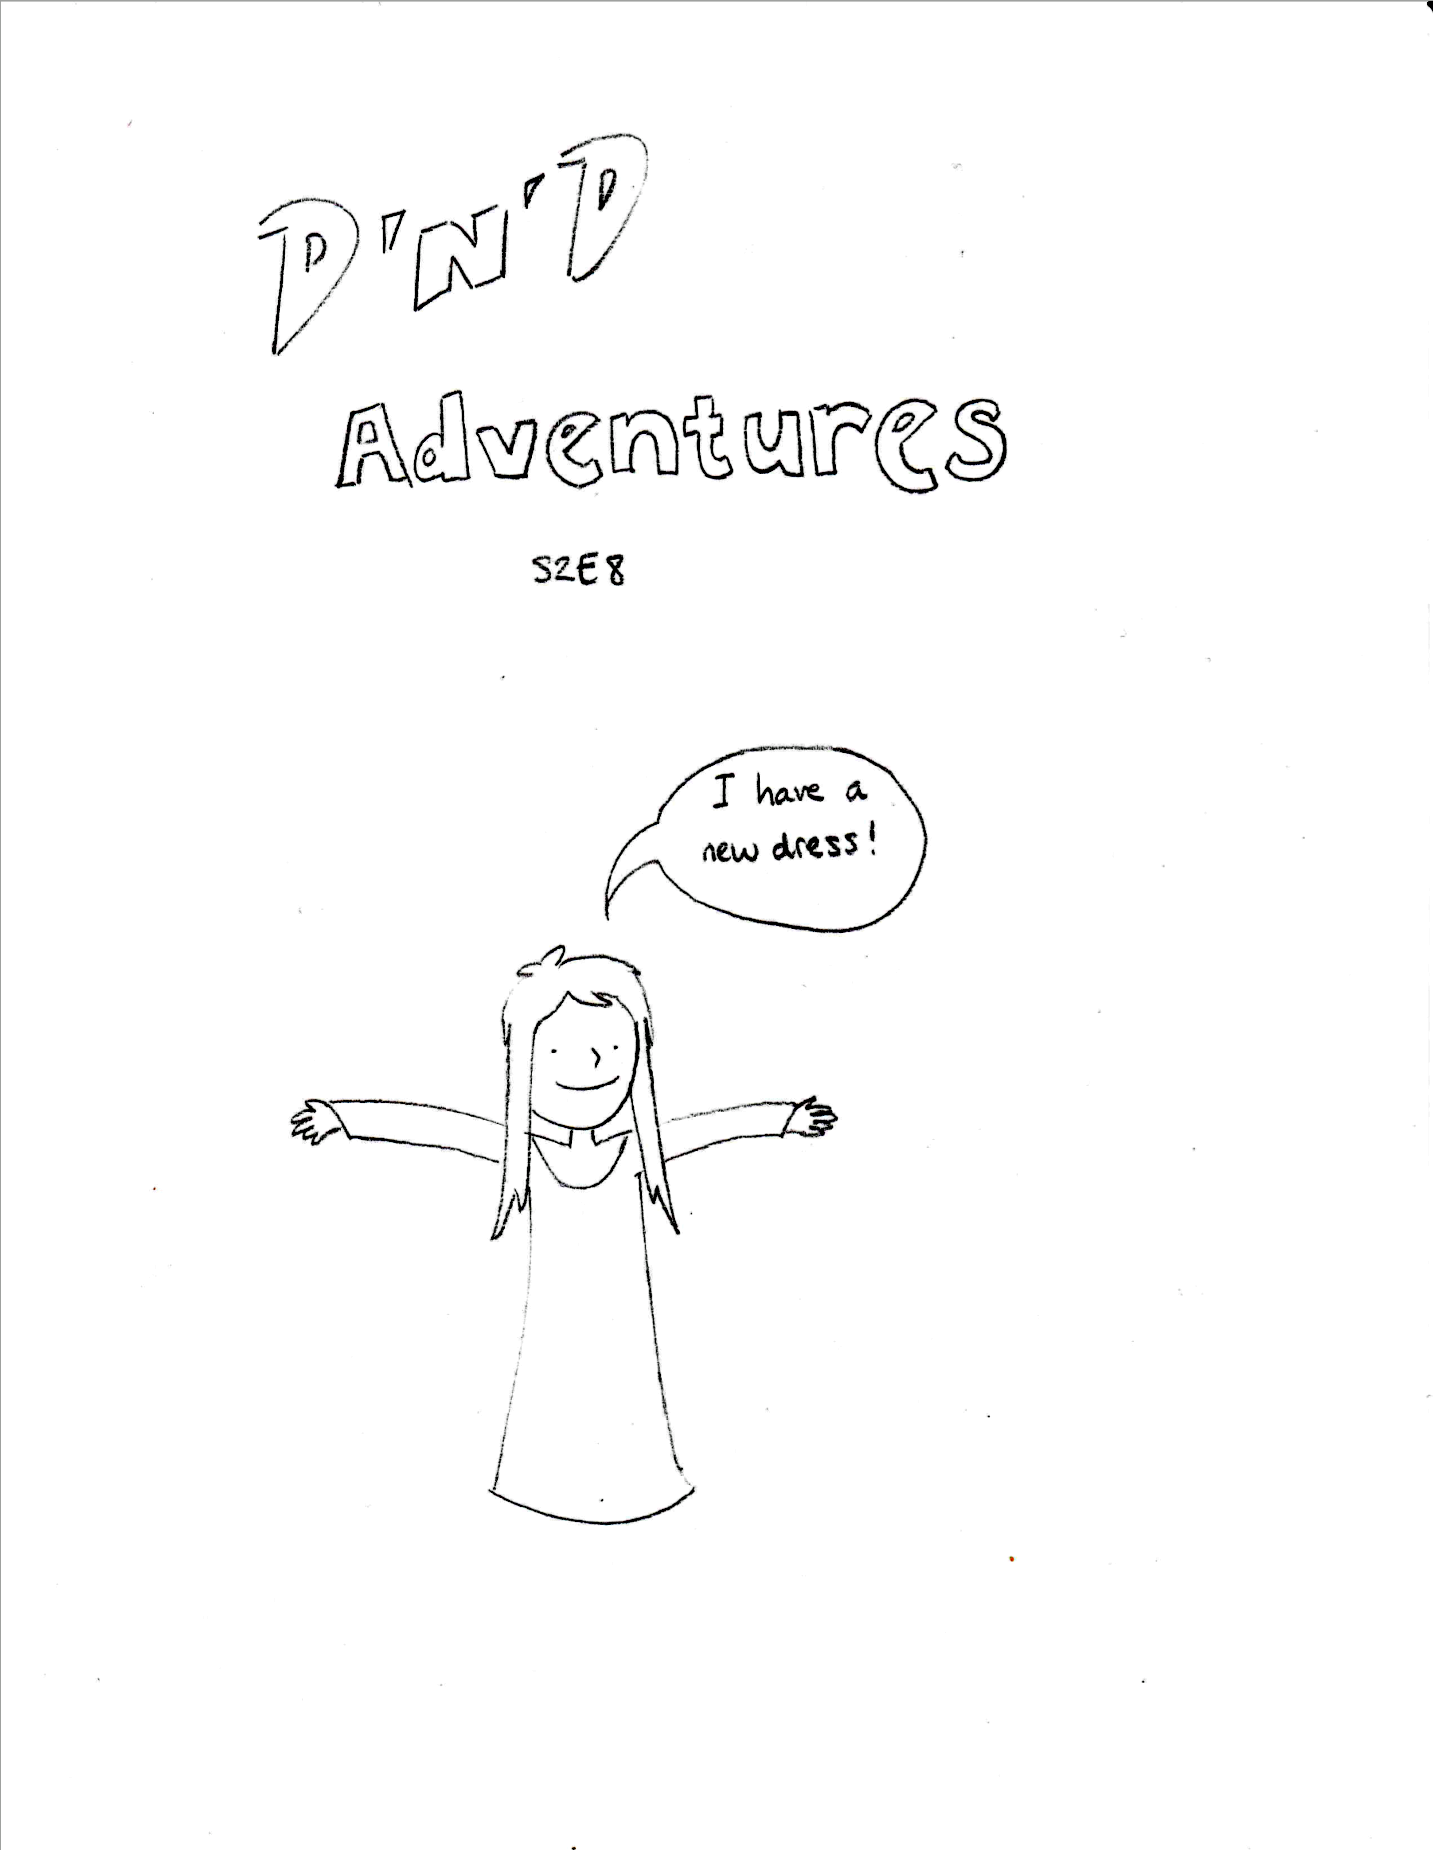 D'N'D
Adventures
S2E8
I have a
new dress!